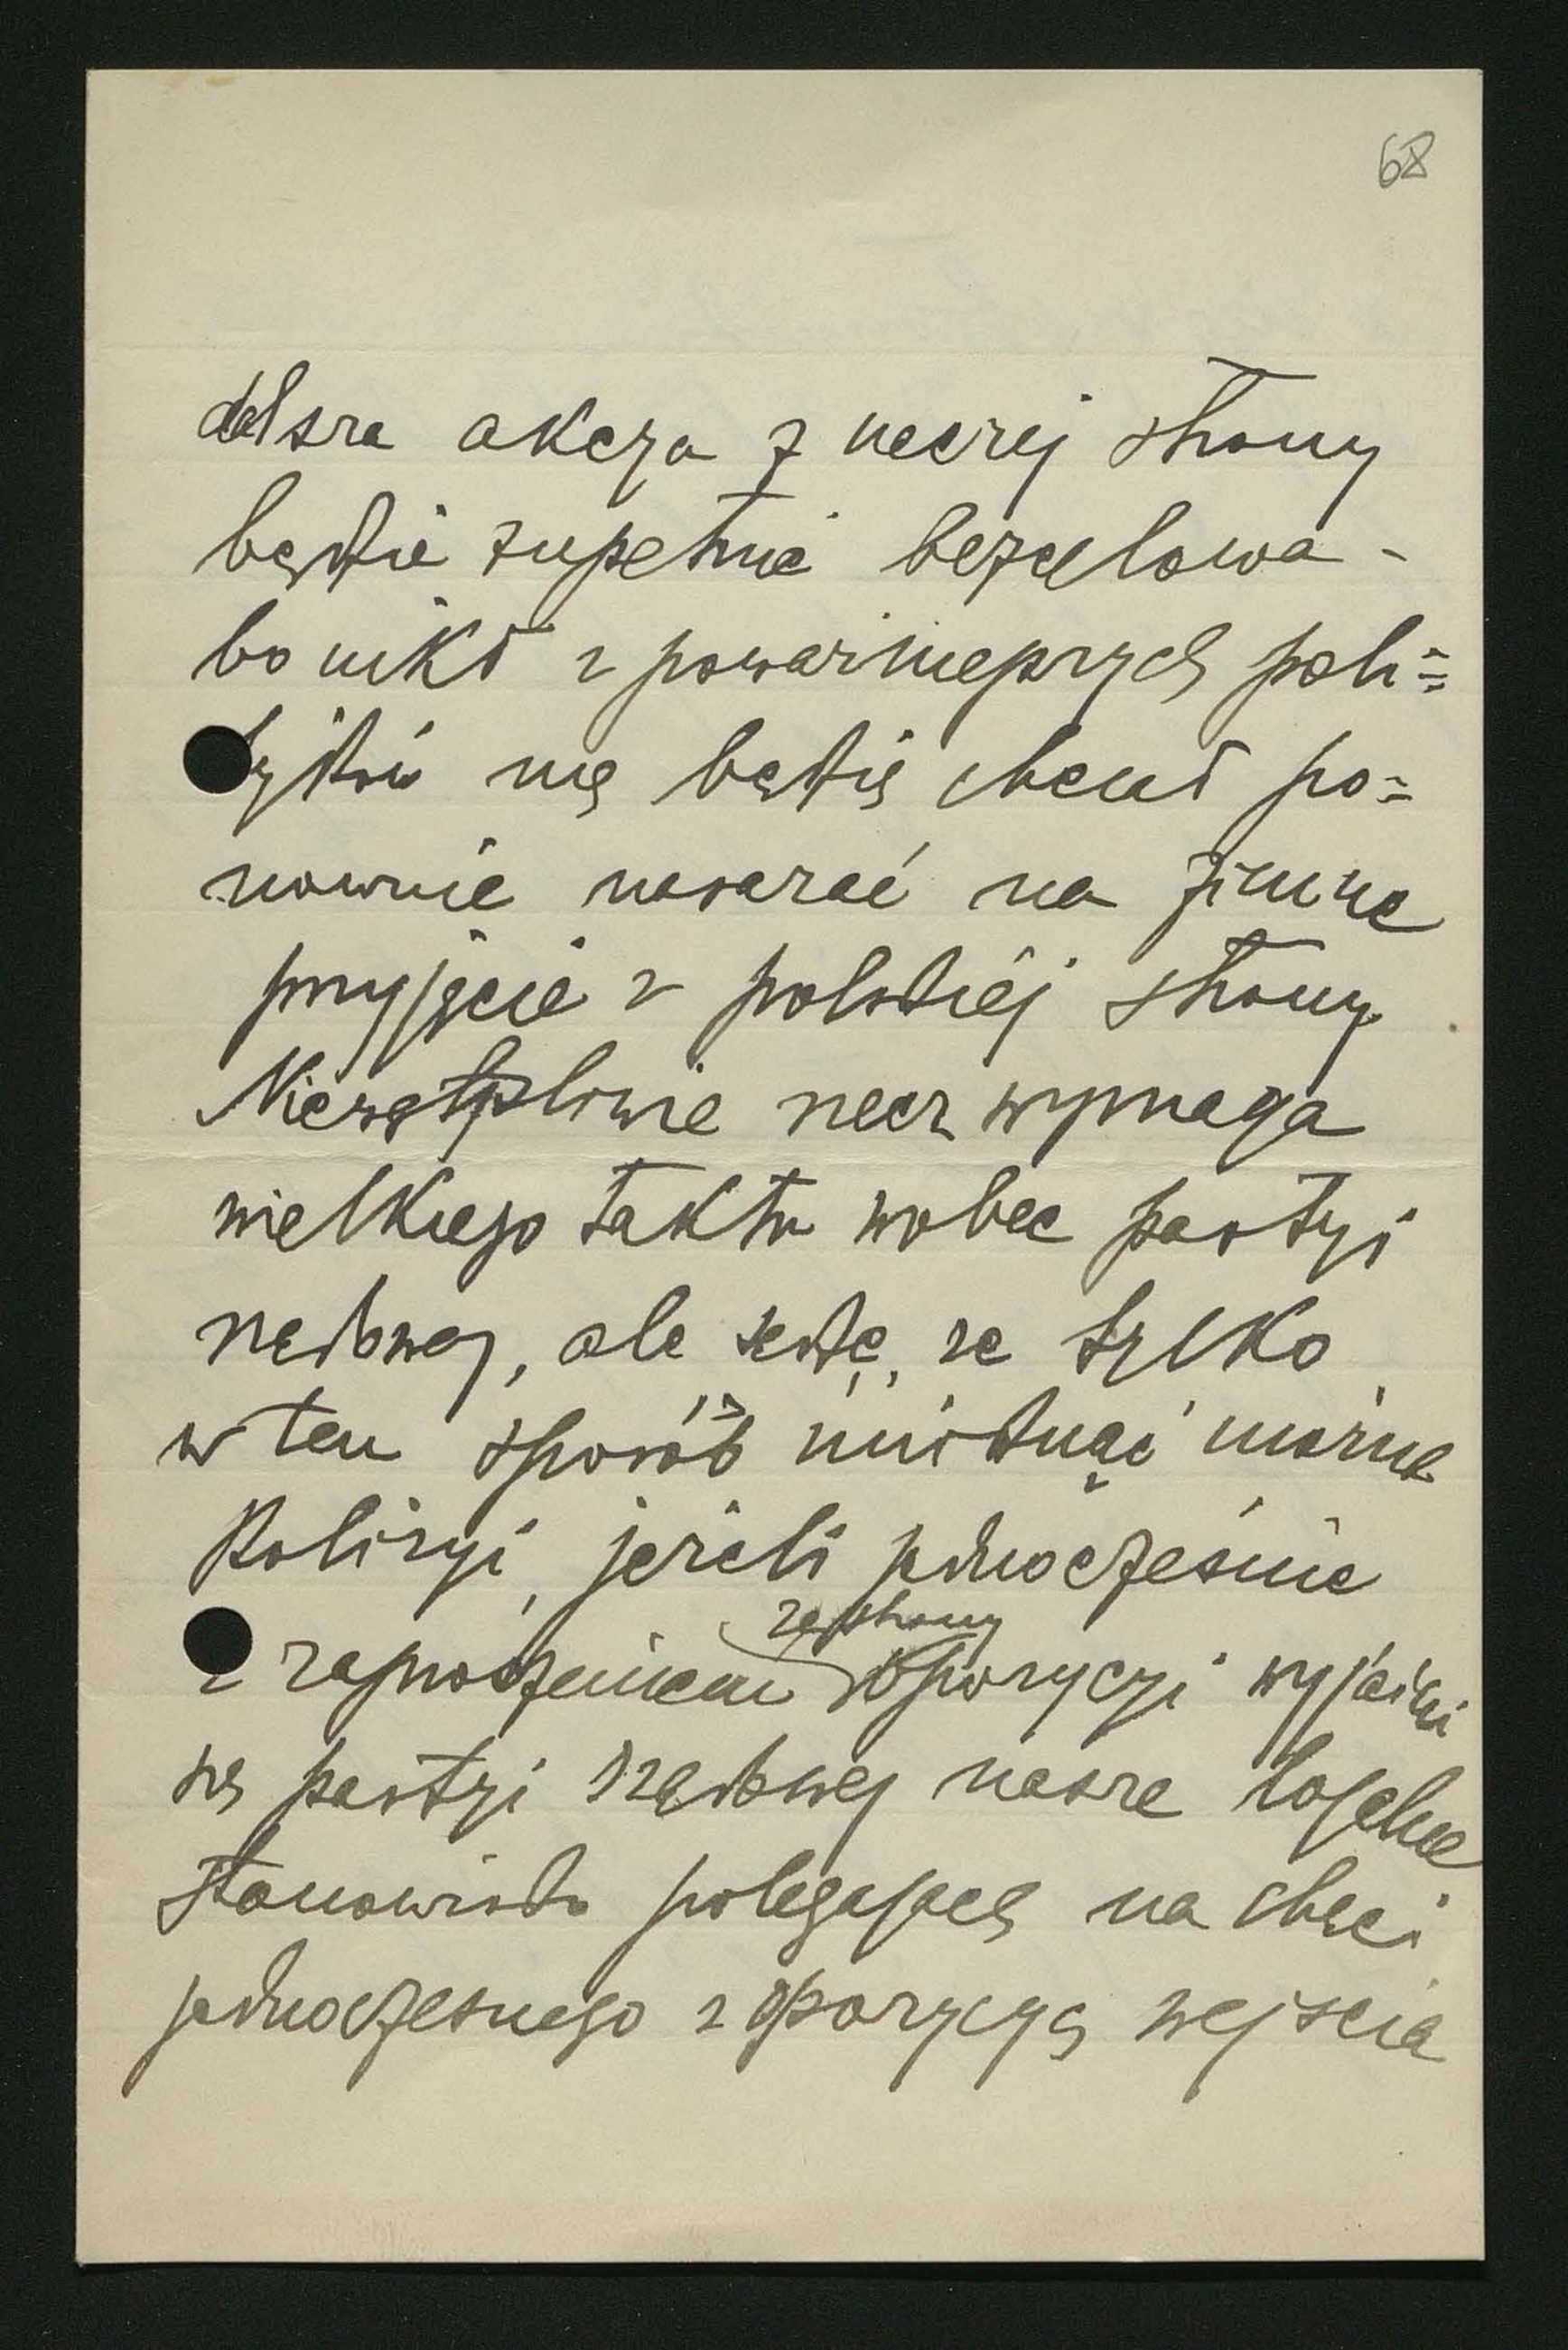 68
dalsza akcya z naszej strony
będzie zupełnie bezcelowa -
bo nikt z poważniejszych poli=
tyków nie będzie chciał po=
nownie narażać na zimne
przyjęcie z polskiej strony
Niewątpliwie rzecz wymaga
wielkiego taktu wobec partyi
rządowej, ale sądzę, że tylko
w ten sposób uniknąć można
kolizyi, jeżeli jednocześnie
ze strony
z zaproszeniem opozycyi wyjaśni
się partyi rządowej nasze lojalne
stanowisko polegające na chęci
jednoczesnego z opozycyą wejścia